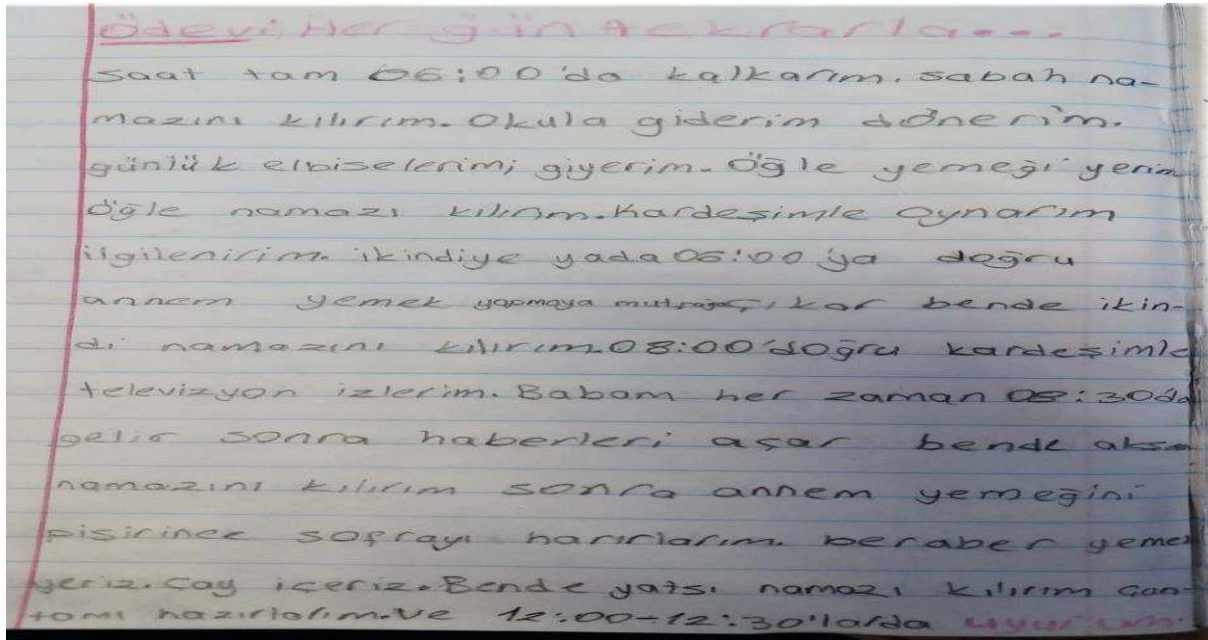 Ödevi, Her gün tekrarla...
saat tam 06:00'da kalkarım. sabah na-
mazını kılırım. Okula giderim dönerim.
günlük elbiselerimi giyerim. Öğle yemeği yerim
öğle namazı kılırım. Kardeşimle oynarım
ilgilenirim. ikindiye yada 06:00'ya doğru
annem yemek yapmaya çıkar bende ikin-
di namazını kılırım. 08:00'doğru kardeşimle
televizyon izlerim. Babam her zaman 08:30'da
gelir sonra haberleri açar bende akşam
namazını kılırım sonra annem yemeğini
pişirince sofrayı harırlarım. beraber yemek
yeriz. çay içeriz. Bende yatsı namazı kılırım çan-
tamı hazırlarım. Ve 12:00-12:30'larda uyurum.